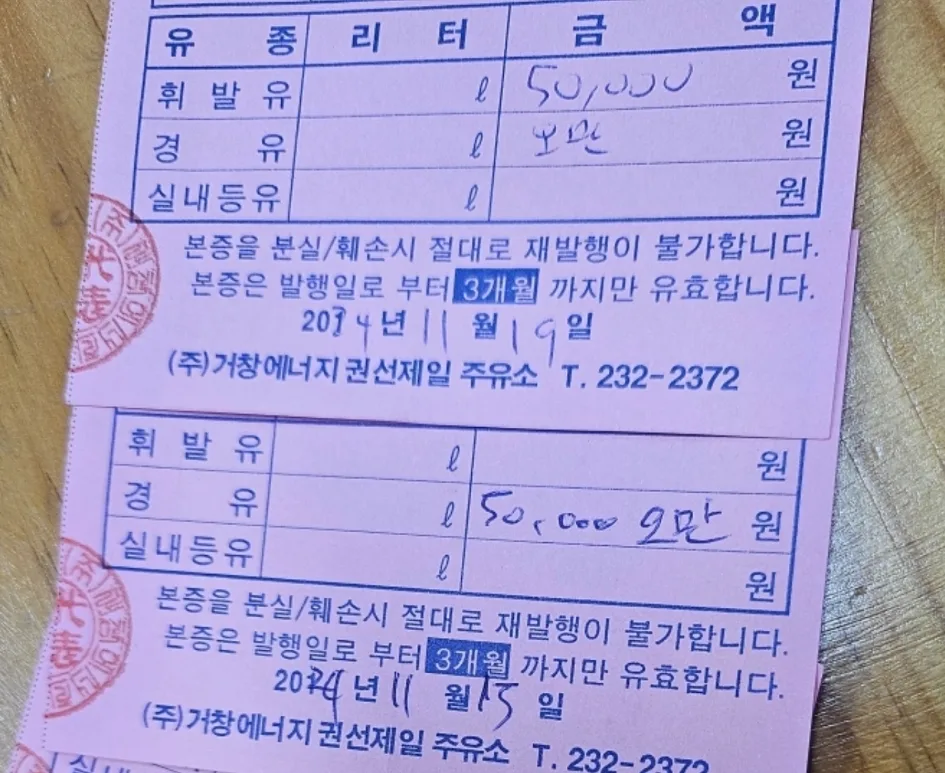 유 종 리 터 금 액
휘 발 유 ℓ 50,000 원
경 유 ℓ 오만 원
실내등유 ℓ 원
본증을 분실/훼손시 절대로 재발행이 불가합니다.
본증은 발행일로 부터 3개월 까지만 유효합니다.
년 11 월 19 일
(주)거창에너지 권선제일 주유소 T. 232-2372
휘 발 유 ℓ 원
경 유 ℓ 50,000 오만 원
실내등유 ℓ 원
본증을 분실/훼손시 절대로 재발행이 불가합니다.
본증은 발행일로 부터 3개월 까지만 유효합니다.
년 11 월 15 일
(주)거창에너지 권선제일 주유소 T. 232-2372